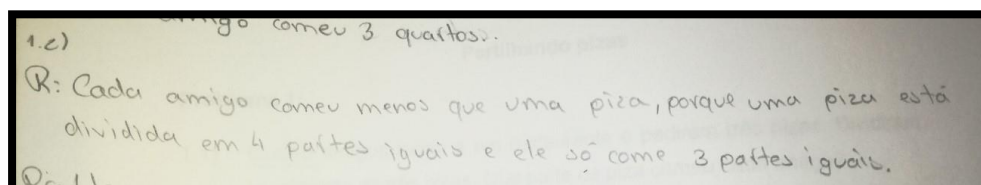 amigo comeu 3 quartos..
1.c)
R: Cada amigo comeu menos que uma piza, porque uma piza está
dividida em 4 partes iguais e ele só come 3 partes iguais.